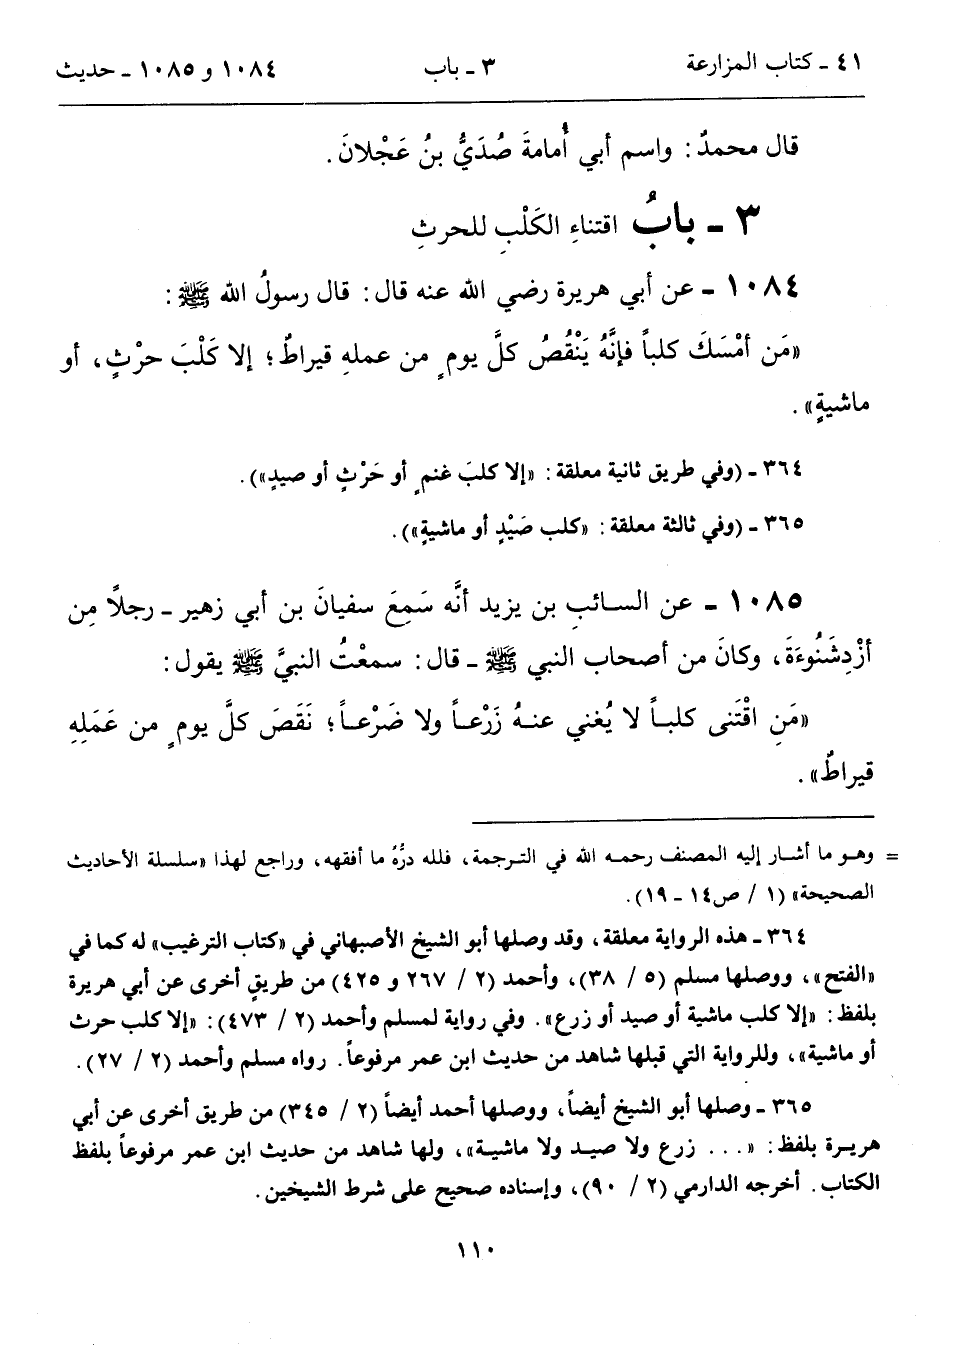 ٤١ ـ كتاب المزارعة ٣ ـ باب ١٠٨٤ و ١٠٨٥ ـ حديث
قال محمدٌ: واسم أبي أُمامةَ صُدَيُّ بنُ عَجْلانَ.
٣ ـ بابُ اقتناءِ الكَلْبِ للحرثِ
١٠٨٤ ـ عن أبي هريرة رضي الله عنه قال: قال رسولُ الله ﷺ:
«مَن أمْسَكَ كلباً فإنَّهُ يَنْقُصُ كلَّ يومٍ من عملهِ قيراطٌ؛ إلا كَلْبَ حرْثٍ، أو
ماشيةٍ».
٣٦٤ ـ (وفي طريق ثانية معلقة: «إلا كلبَ غنمٍ أو حَرْثٍ أو صيدٍ»).
٣٦٥ ـ (وفي ثالثة معلقة: «كلب صَيْدٍ أو ماشيةٍ»).
١٠٨٥ ـ عن السائبِ بن يزيد أنَّه سَمِعَ سفيانَ بن أبي زهير ـ رجلاً مِن
أزْدِشَنُوءَةَ، وكانَ من أصحاب النبي ﷺ ـ قال: سمعْتُ النبيَّ ﷺ يقول:
«مَنِ اقْتَنى كلبـاً لا يُغني عنـهُ زَرْعـاً ولا ضَرْعـاً؛ نَقَصَ كلَّ يومٍ من عَمَلِهِ
قيراطٌ».
= وهـو ما أشـار إليه المصنف رحمـه الله في الترجمة، فلله درُّهُ ما أفقهه، وراجع لهذا «سلسلة الأحاديث
الصحيحة» (١ / ص١٤ ـ ١٩).
٣٦٤ ـ هذه الرواية معلقة، وقد وصلها أبو الشيخ الأصبهاني في «كتاب الترغيب» له كما في
«الفتح»، ووصلها مسلم (٥ / ٣٨)، وأحمد (٢ / ٢٦٧ و ٤٢٥) من طريقٍ أخرى عن أبي هريرة
بلفظ: «إلا كلب ماشية أو صيد أو زرع». وفي رواية لمسلم وأحمد (٢ / ٤٧٣): «إلا كلب حرث
أو ماشية»، وللرواية التي قبلها شاهد من حديث ابن عمر مرفوعاً. رواه مسلم وأحمد (٢ / ٢٧).
٣٦٥ ـ وصلها أبو الشيخ أيضاً، ووصلها أحمد أيضاً (٢ / ٣٤٥) من طريق أخرى عن أبي
هريـرة بلفظ: «... زرع ولا صيـد ولا ماشيـة»، ولها شاهد من حديث ابن عمر مرفوعاً بلفظ
الكتاب. أخرجه الدارمي (٢ / ٩٠)، وإسناده صحيح على شرط الشيخين.
١١٠